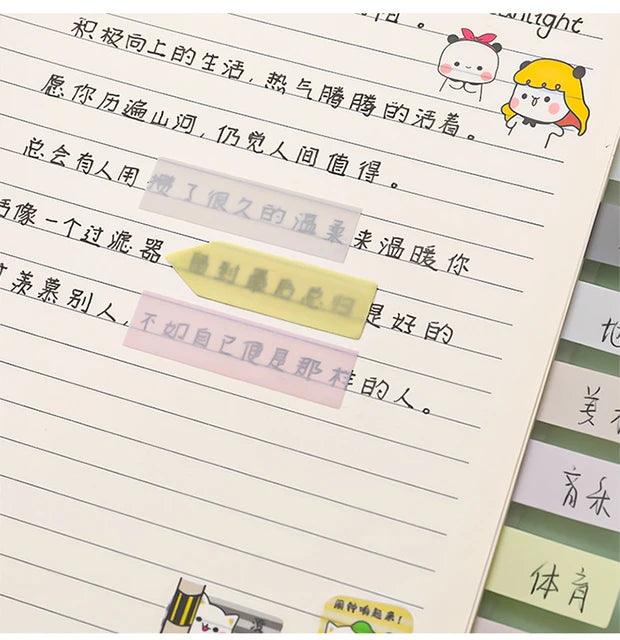 积极向上的生活，热气腾腾的活着。
愿你历遍山河，仍觉人间值得。
总会有人用攒了很久的温柔来温暖你
活像一个过滤器 留到最后总归是好的
羡慕别人，不如自己便是那样的人。
美
音乐
体育
闹钟响起来！